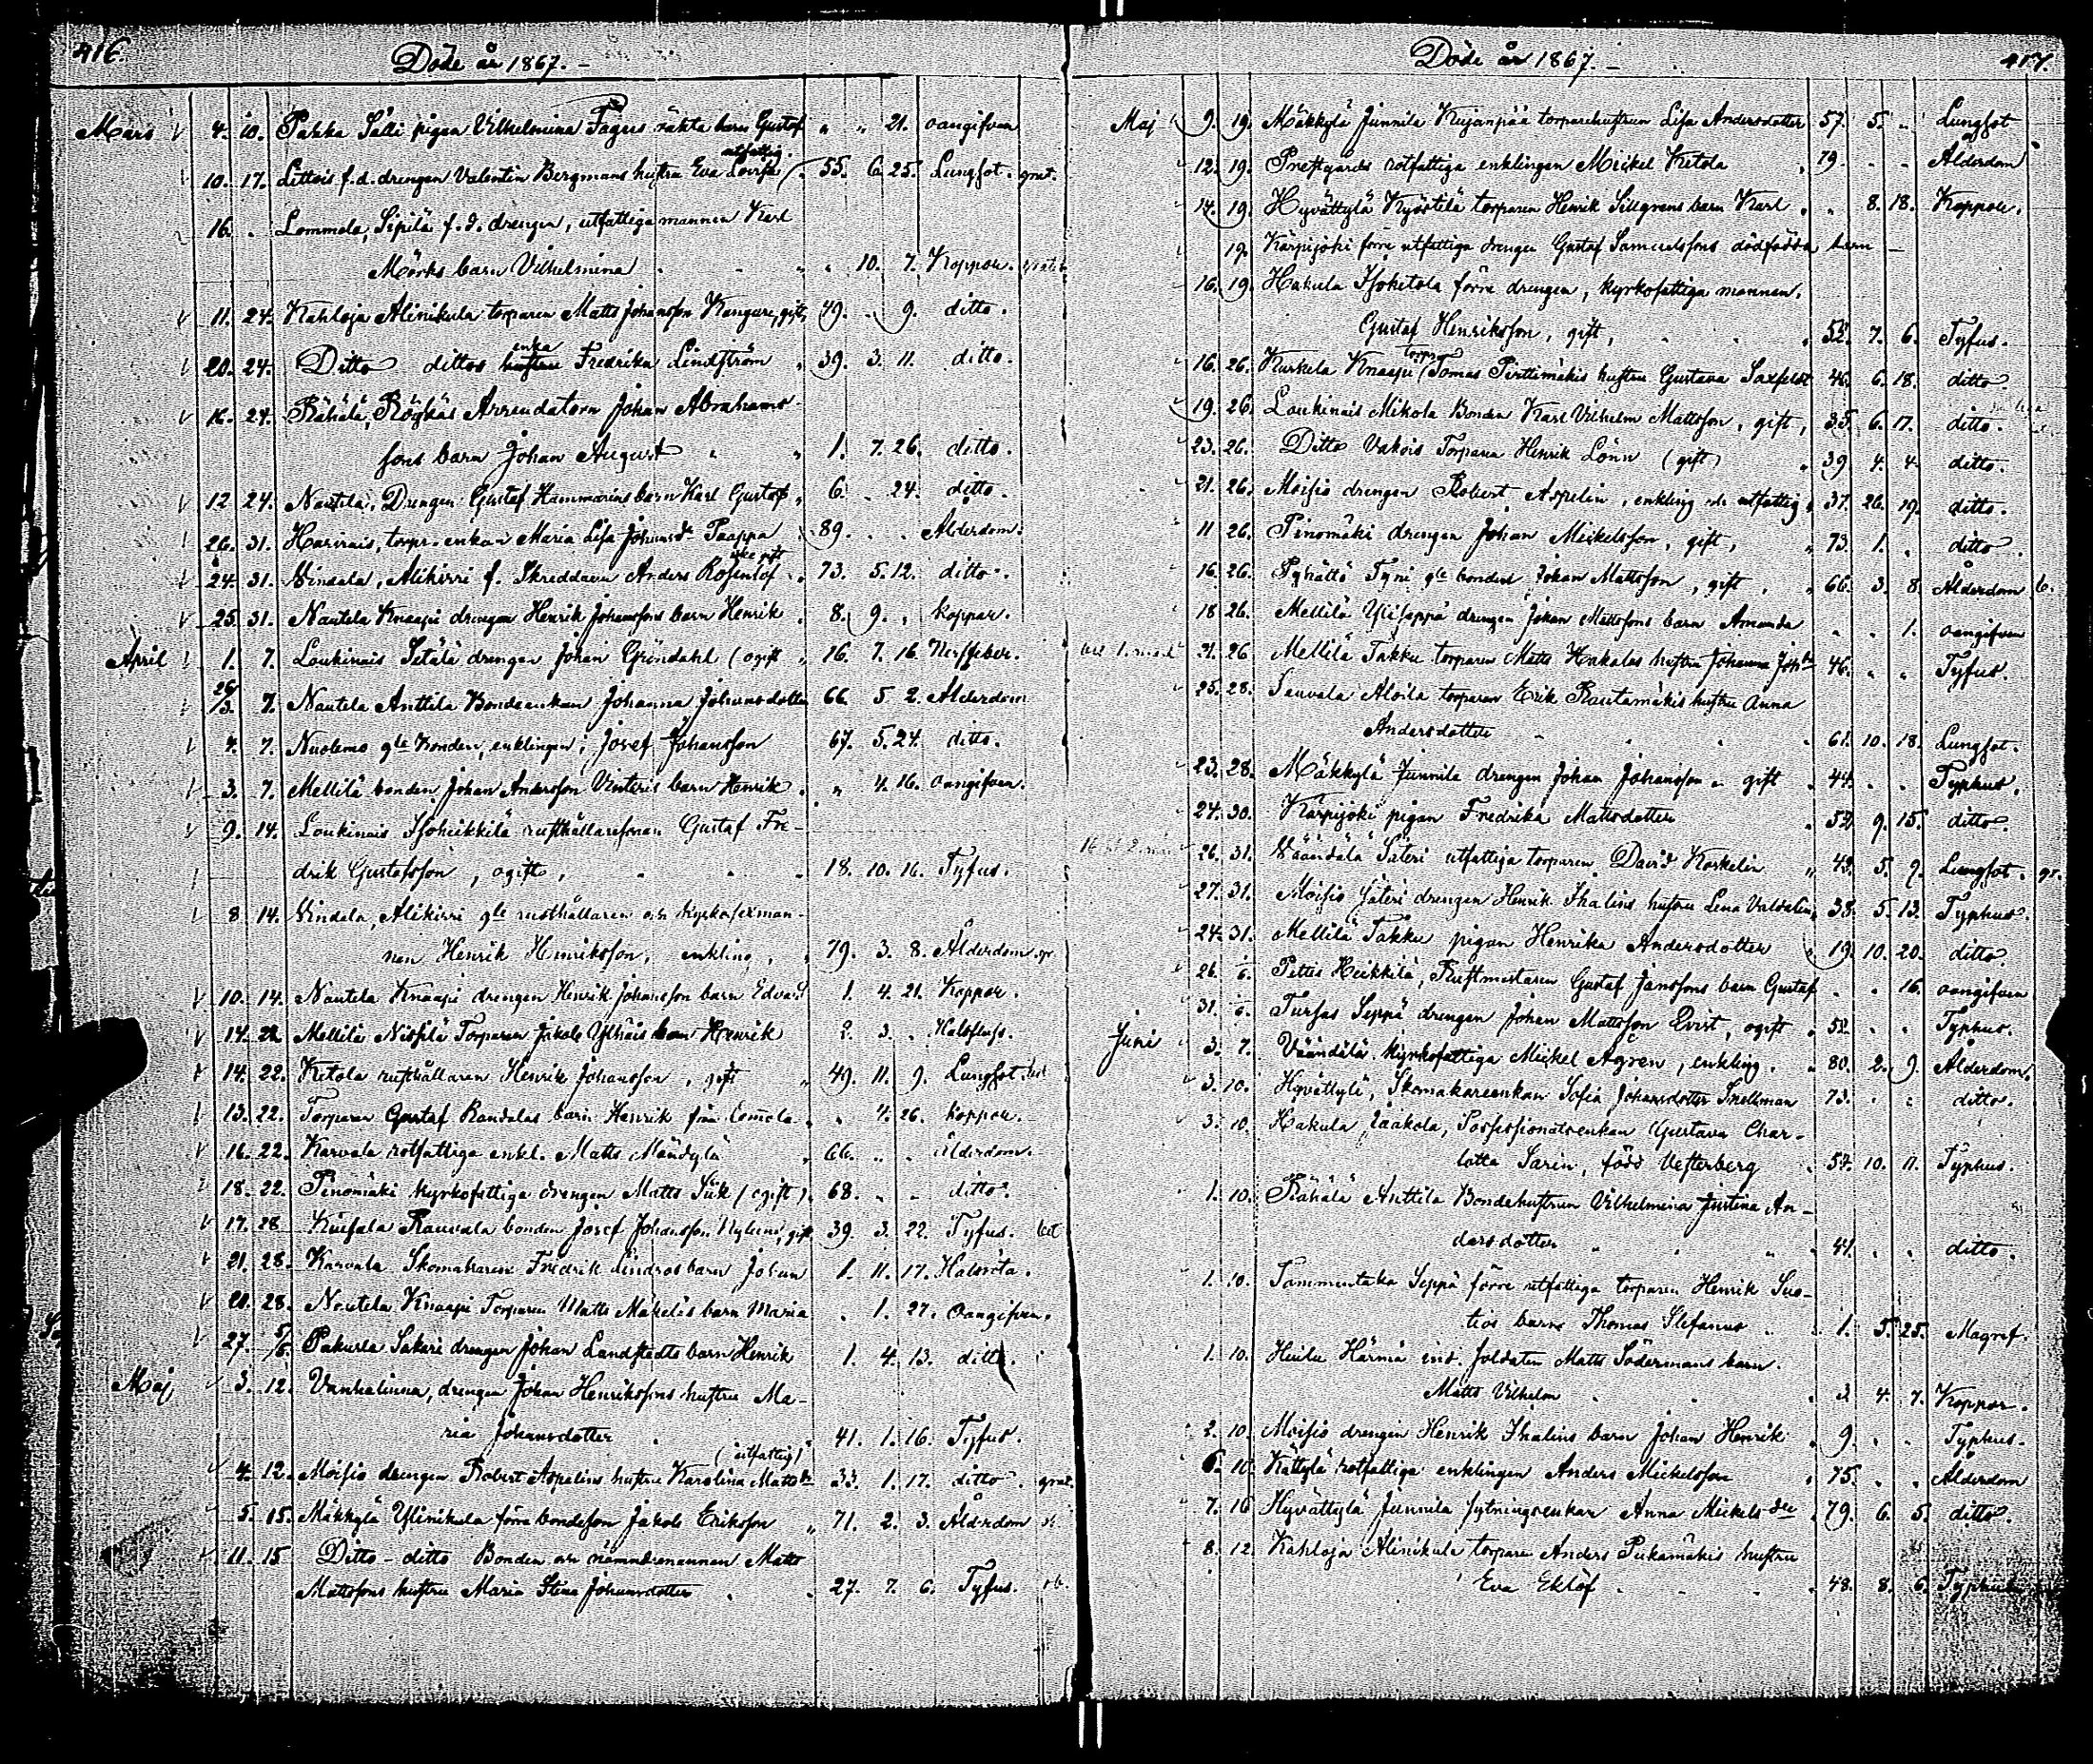 416.
Döde år 1867. –
Mars 4. 10. Pakka Sälli pigan Vilhelmina Fagers oäkta barn Gustaf „ „ 21. oangifven
utfattig.
10. 17. Littois f.d. drengen Valentin Bergmans hustru Eva Lovisa 55. 6. 25. Lungsot. grat.
16. „ Lommola, Sipilä f.d. drengen, utfattiga mannen Karl
Mörks barn Vilhelmina „ 10. 7. Koppor.
11. 24. Kahloja Alinikula torparen Matts Johansson Kangure, gift, 49. „ 9. ditto.
enka
20. 24. Ditto dittos Fredrika Lindström 39. 3. 11. ditto.
16. 24. Rähälä, Röykäs Arrendatorn Johan Abrahams-
sons barn Johan August 1. 7. 26. ditto.
12 24. Nautela, Drengen Gustaf Hammarins barn Karl Gustaf 6. „ 24. ditto.
26. 31. torpr. enkan Maria Lisa Johansdr Paappa 89. „ „ Ålderdom.
24. 31. Vindala, Alikirri f. Skreddaren Anders Rosenlöf 73. 5. 12. ditto.
25. 31. Nautela Knaapi drengen Henrik Johanssons barn Henrik 8. 9. „ koppor.
April 1. 7. Loukinais Sätälä drengen Johan Gröndahl (ogift 16. 7. 16. Nerffeber.
26/3. 7. Nautela Anttila Bondeenkan Johanna Johansdotter 66. 5 2. Ålderdom
4. 7. Nuolemo gle Bonden, enklingen, Josef Johansson 67. 5. 24. ditto.
3. 7. Mellilä bonden Johan Andersson Vinteris barn Henrik „ 4. 16. oangifven.
9. 14. Loukinais Isoheikkilä rusthållaresonen Gustaf Fre-
drik Gustafsson, ogift, 18. 10. 16. Tyfus.
8 14. Vindala, Alikirri gle rusthållaren och kyrkosexman-
nen Henrik Henriksson, enkling, 79. 3. 8. Ålderdom
10. 14. Nautela Knaapi drengen Henrik Johansson barn Edvard 1. 4. 21. Koppor.
14. 22 Mellilä Torparen Jakob barn Henrik 2. 3. „ Halsfluss.
14. 22. Ketola rusthållaren Henrik Johansson, gift 49. 11. 9. Lungsot.
13. 22. Torparen Gustaf Randalas barn Henrik från Lommola „ 4. 26. koppor.
16. 22. Karvala rotfattiga enkl. Matts Mändylä 66. „ „ ålderdom.
18. 22. Pinomäki kyrkofattiga drengen Matts Siik (ogift) 68. „ „ ditto.
17. 28 Rauvala bonden Josef Johansson Nylund, gift 39. 3. 22. Tyfus.
21. 28. Karvala Skomakaren Fredrik Lindros barn Johan 1. 11. 17. Halsröta.
20. 28. Nautela Knaapi Torparen Matts Mäkeläs barn Maria „ 1. 27. Oangifven.
27. 5/6. Pakurla Sakari drengen Johan Landstedts barn Henrik 1. 4. 13. ditto.
Maj 3. 12. Vanhalinna, drengen Johan Henrikssons hustru Ma-
ria Johansdotter 41. 1. 16. Tyfus.
(utfattig)
4. 12. Moisio drengen Robert Aspelins hustru Karolina Mattsdr 33. 1. 17. ditto. grat.
5. 15. Mäkkylä Ylinikula förre bondeson Jakob Eriksson „ 71. 2. 3. Ålderdom
11. 15 Ditto - ditto Bonden och nämndemannen Matts
Mattssons hustru Maria Stina Johansdotter 27. 7. 6. Tyfus.
Döde år 1867. –
417.
Maj 9. 19. Mäkkylä Junnila Kujanpää torparehustrun Lisa Andersdotter 57. 5. „ Lungsot
12. 19. Prestgårds rotfattiga enklingen Mickel Ketola 79. „ „ Ålderdom
14. 19. Hyvättylä Kyöstilä torparen Henrik Sillgrens barn Karl „ 8. 18. Koppor.
19. Kärpijoki förre utfattiga drengen Gustaf Samuelssons dödfödda barn –
16. 19. Hakula Isoketola förre drengen, kyrkofattiga mannen,
Gustaf Henriksson, gift, 52. 7. 6. Tyfus.
torpr
16. 26. Kurkela Knaapi Tomas Perttimäkis hustru Gustava Saxfelt 46. 6. 18. ditto.
19. 26. Loukinais Mikola Bonden Karl Vilhelm Mattsson, gift, 35. 6. 17. ditto.
23. 26. Ditto Vakois Torparen Henrik Lönn (gift) 39. 4. 4. ditto.
21. 26. Moisio drengen Robert Aspelin, enkling och utfattig 37. 26. 19. ditto.
11 26. Pinomäki drengen Johan Mickelsson, gift, 73. 1. „ ditto.
16. 26. Pyhältö Tyni gle bonden Johan Mattsson, gift, 66. 3. 8. Ålderdom
18 26. Mellilä Yliseppä drengen Johan Mattssons barn Amanda „ „ 1. oangifven
21. 26 Mellilä Takku torparen Matts Hakalas hustru Johanna Johdr 46. „ „ Tyfus.
25. 28. Sauvala Aloila torparen Erik Rautamäkis hustru Anna
Andersdotter 61. 10. 18. Lungsot.
23. 28. Mäkkylä Junnila drengen Johan Johansson gift 44. „ „ Typhus.
24. 30. Kärpijoki pigan Fredrika Mattsdotter 52. 9. 15. ditto.
26. 31. Väändälä Säteri utfattiga torparen David Koskelin 42. 5. 9. Lungsot. gr.
27. 31. Moisio Säteri drengen Henrik Thalins hustru Lena 38. 5. 13. Typhus.
24. 31. Mellilä Takku pigan Henrika Andersdotter 19. 10. 20. ditto
26. 6. Pettis Heikkilä, Gustaf Janssons barn Gustaf „ „ 16. oangifven
31. 6. Tursas Seppä drengen Johan Mattsson Qvist, ogift 52. „ „ Typhus.
Juni 3. 7. Väändälä kyrkofattiga Mickel Agren, enkling. 80. 2. 9. Ålderdom.
3. 10. Hyvättylä, Skomakareenkan Sofia Johansdotter Snellman 73. „ „ ditto.
3. 10. Hakula Jaakola, Possessionatsenkan Gustava Char-
lotta Sarin, född Vesterberg 57. 10. 11. Typhus.
1. 10. Rähälä Anttila Bondehustrun Vilhelmina Justina An-
dersdotter 41. „ „ ditto.
1. 10. Tammentaka Seppä förre utfattiga torparen Henrik Suo-
tios barn Thomas Stefanus 1. 5. 25. Magref.
1. 10. Huilu Härmä ind. soldaten Matts Södermans barn.
Matts Vilhelm 2 4. 7. Koppor.
2. 10. Moisio drengen Henrik Thalins barn Johan Henrik 9. „ „ Typhus.
6. 10. Kättylä rotfattiga enklingen Anders Mickelsson 75. „ „ Ålderdom
7. 16 Hyvättylä Junnila sytningsenkan Anna Mickelsdr 79. 6. 5. ditto.
8. 12. Kahloja Alinikula torparen Anders Pukamäkis hustru
Eva Eklöf 48. 8. 6. Typhus